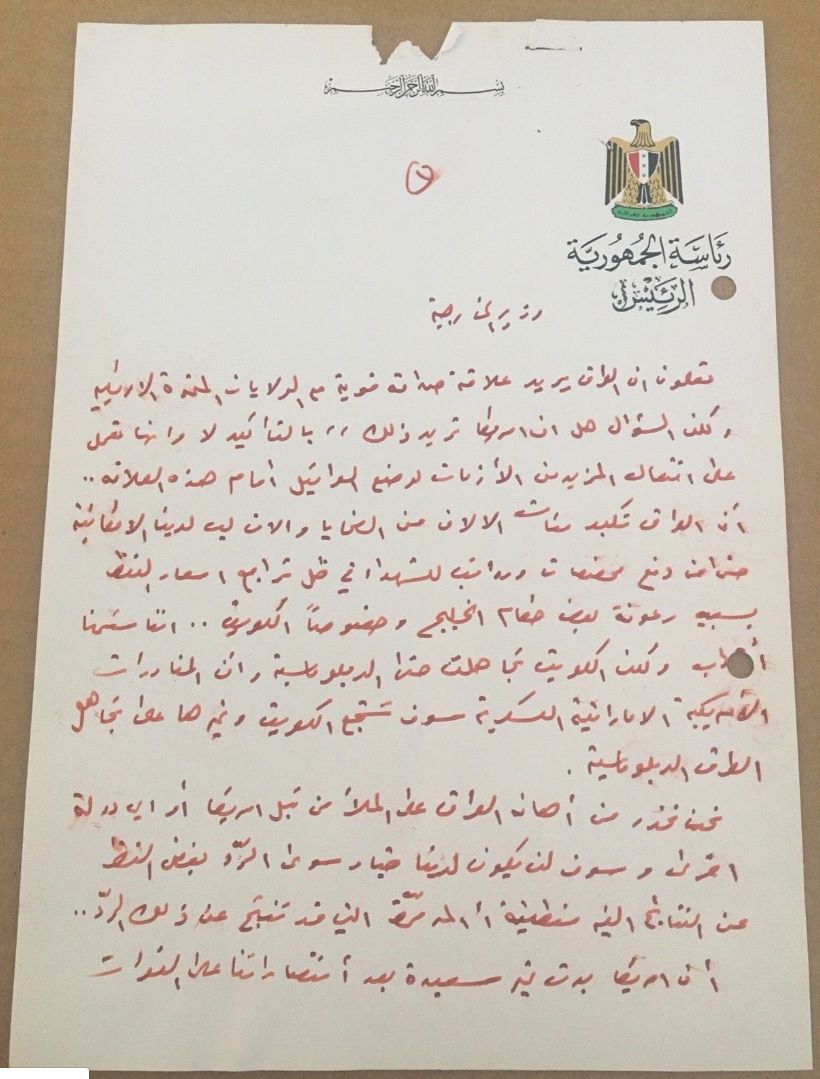 بسم الله الرحمن الرحيم
رئاسة الجمهورية
الرئيس
وزير الخارجية
تعلمون ان العراق يريد علاقة صداقة قوية مع الولايات المتحدة الامريكية
ولكن السؤال هل ان امريكا تريد ذلك ،، بالتأكيد لا وانها تعمل
على افتعال المزيد من الأزمات لوضع العراقيل امام هذه العلاقه ..
أن العراق تكبد مئات الالاف من الضحايا والان ليس لدينا الامكانية
حتى من دفع مخصصات ورواتب للشهداء في ظل تراجع اسعار النفط
بسبب رعونة بعض حكام الخليج وخصوصاً الكويت .. اننا
ولكن الكويت تجاهلت حتى الدبلوماسية وأن المناورات
الأمريكية الاماراتية العسكرية سوف تشجع الكويت وغيرها على تجاهل
الطرق الدبلوماسية .
نحن نحذر من أهانه العراق على الملأ من قبل امريكا أو اي دولة
اخرى وسوف لن يكون لدينا خيار سوى الردّ بغض النظر
عن النتائج التي ستعطينة أو المدمرّة التي قد تنتج عن ذلك الردّ ..
أن امريكا بدت غير سعيدة بعد أنتصاراتنا على القوات